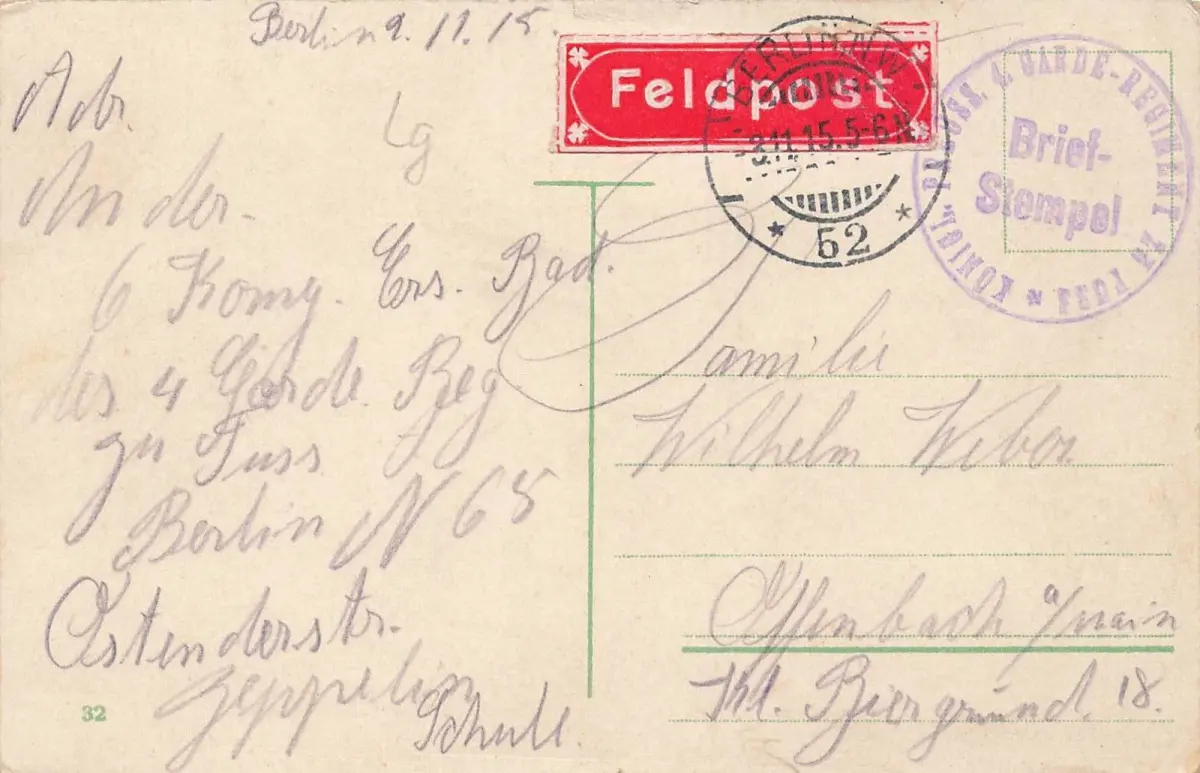 Berlin 9. 11. 15.
Feldpost
BERLIN NW
9.11.15.5-6N
* 52 *
KÖNIGL. PREUSS. 4. GARDE-REGIMENT ZU FUSS
Brief-
Stempel
Adr.
An der
6 Komp. Ers. Bad.
des 4 Garde. Reg
zu Fuss
Berlin N 65
Ostenderstr.
Zeppelin
Schule.
32
Familie
Wilhelm Weber
Offenbach a/main
Kl. Biergrund. 18.